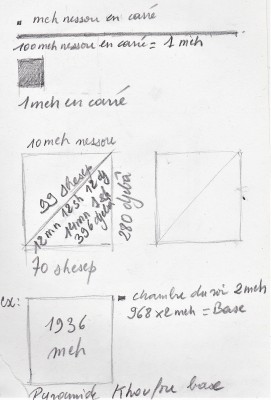 . mch nessou en carré
100 mch nessou en carré = 1 mch
1 mch en carré
10 mch nessou
99 shesep
12 mn 123h 12 dj
14 mn 1
396 djebâ
280 djebâ
70 shesep
ex:
1936
mch
- chambre du roi 2 mch
968 x 2 mch = Base
Pyramide Khoufou base